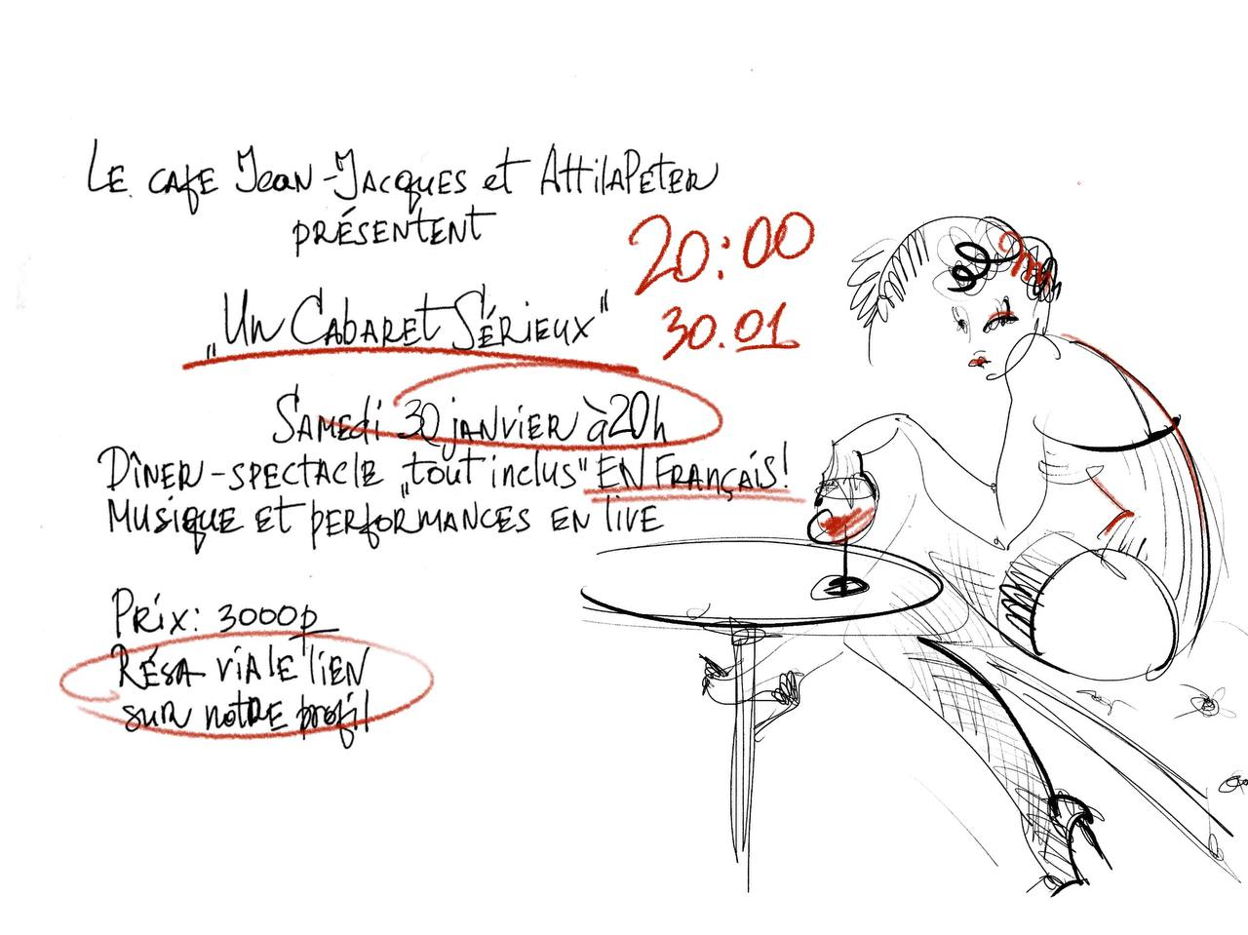 Le cafe Jean-Jacques et AttilaPeter
présentent
20:00
„Un Cabaret Sérieux"
30.01
Samedi 30 janvier à 20h
Dîner-spectacle „tout inclus" en Français!
Musique et performances en live
Prix: 3000р
Résa via le lien
sur notre profil